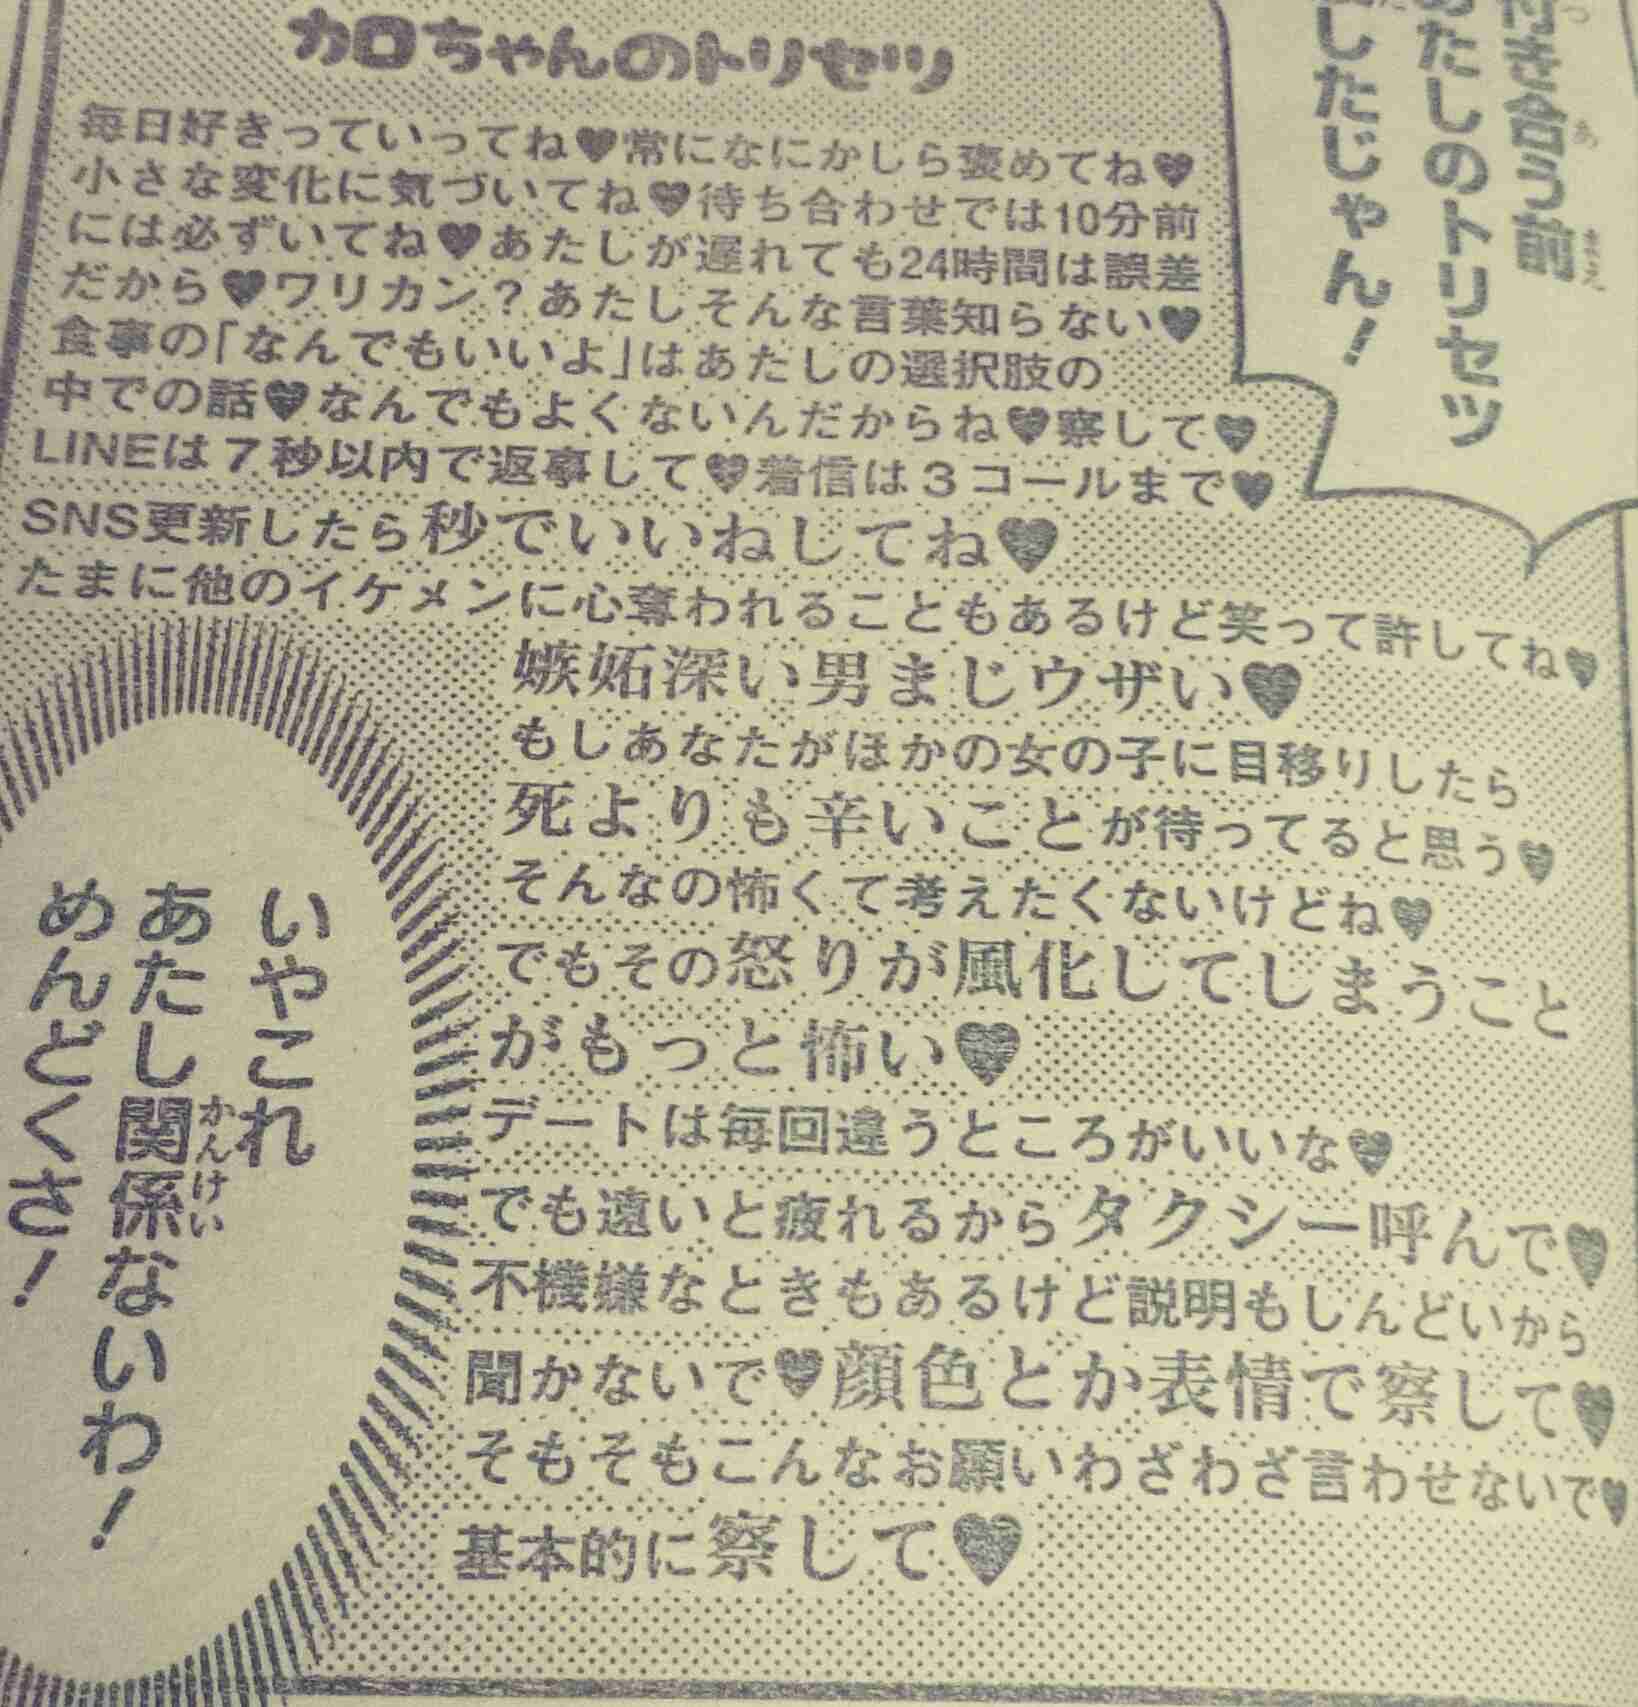 付き合う前
あたしのトリセツ
したじゃん!
カロちゃんのトリセツ
毎日好きっていってね♥常になにかしら褒めてね♥
小さな変化に気づいてね♥待ち合わせでは10分前
には必ずいてね♥あたしが遅れても24時間は誤差
だから♥ワリカン?あたしそんな言葉知らない♥
食事の「なんでもいいよ」はあたしの選択肢の
中での話♥なんでもよくないんだからね♥察して♥
LINEは7秒以内で返事して♥着信は3コールまで♥
SNS更新したら秒でいいねしてね♥
たまに他のイケメンに心奪われることもあるけど笑って許してね♥
嫉妬深い男まじウザい♥
もしあなたがほかの女の子に目移りしたら
死よりも辛いことが待ってると思う♥
そんなの怖くて考えたくないけどね♥
でもその怒りが風化してしまうこと
がもっと怖い♥
デートは毎回違うところがいいな♥
でも遠いと疲れるからタクシー呼んで♥
不機嫌なときもあるけど説明もしんどいから
聞かないで♥顔色とか表情で察して♥
そもそもこんなお願いわざわざ言わせないで♥
基本的に察して♥
いやこれ
あたし関係ないわ!
めんどくさ!